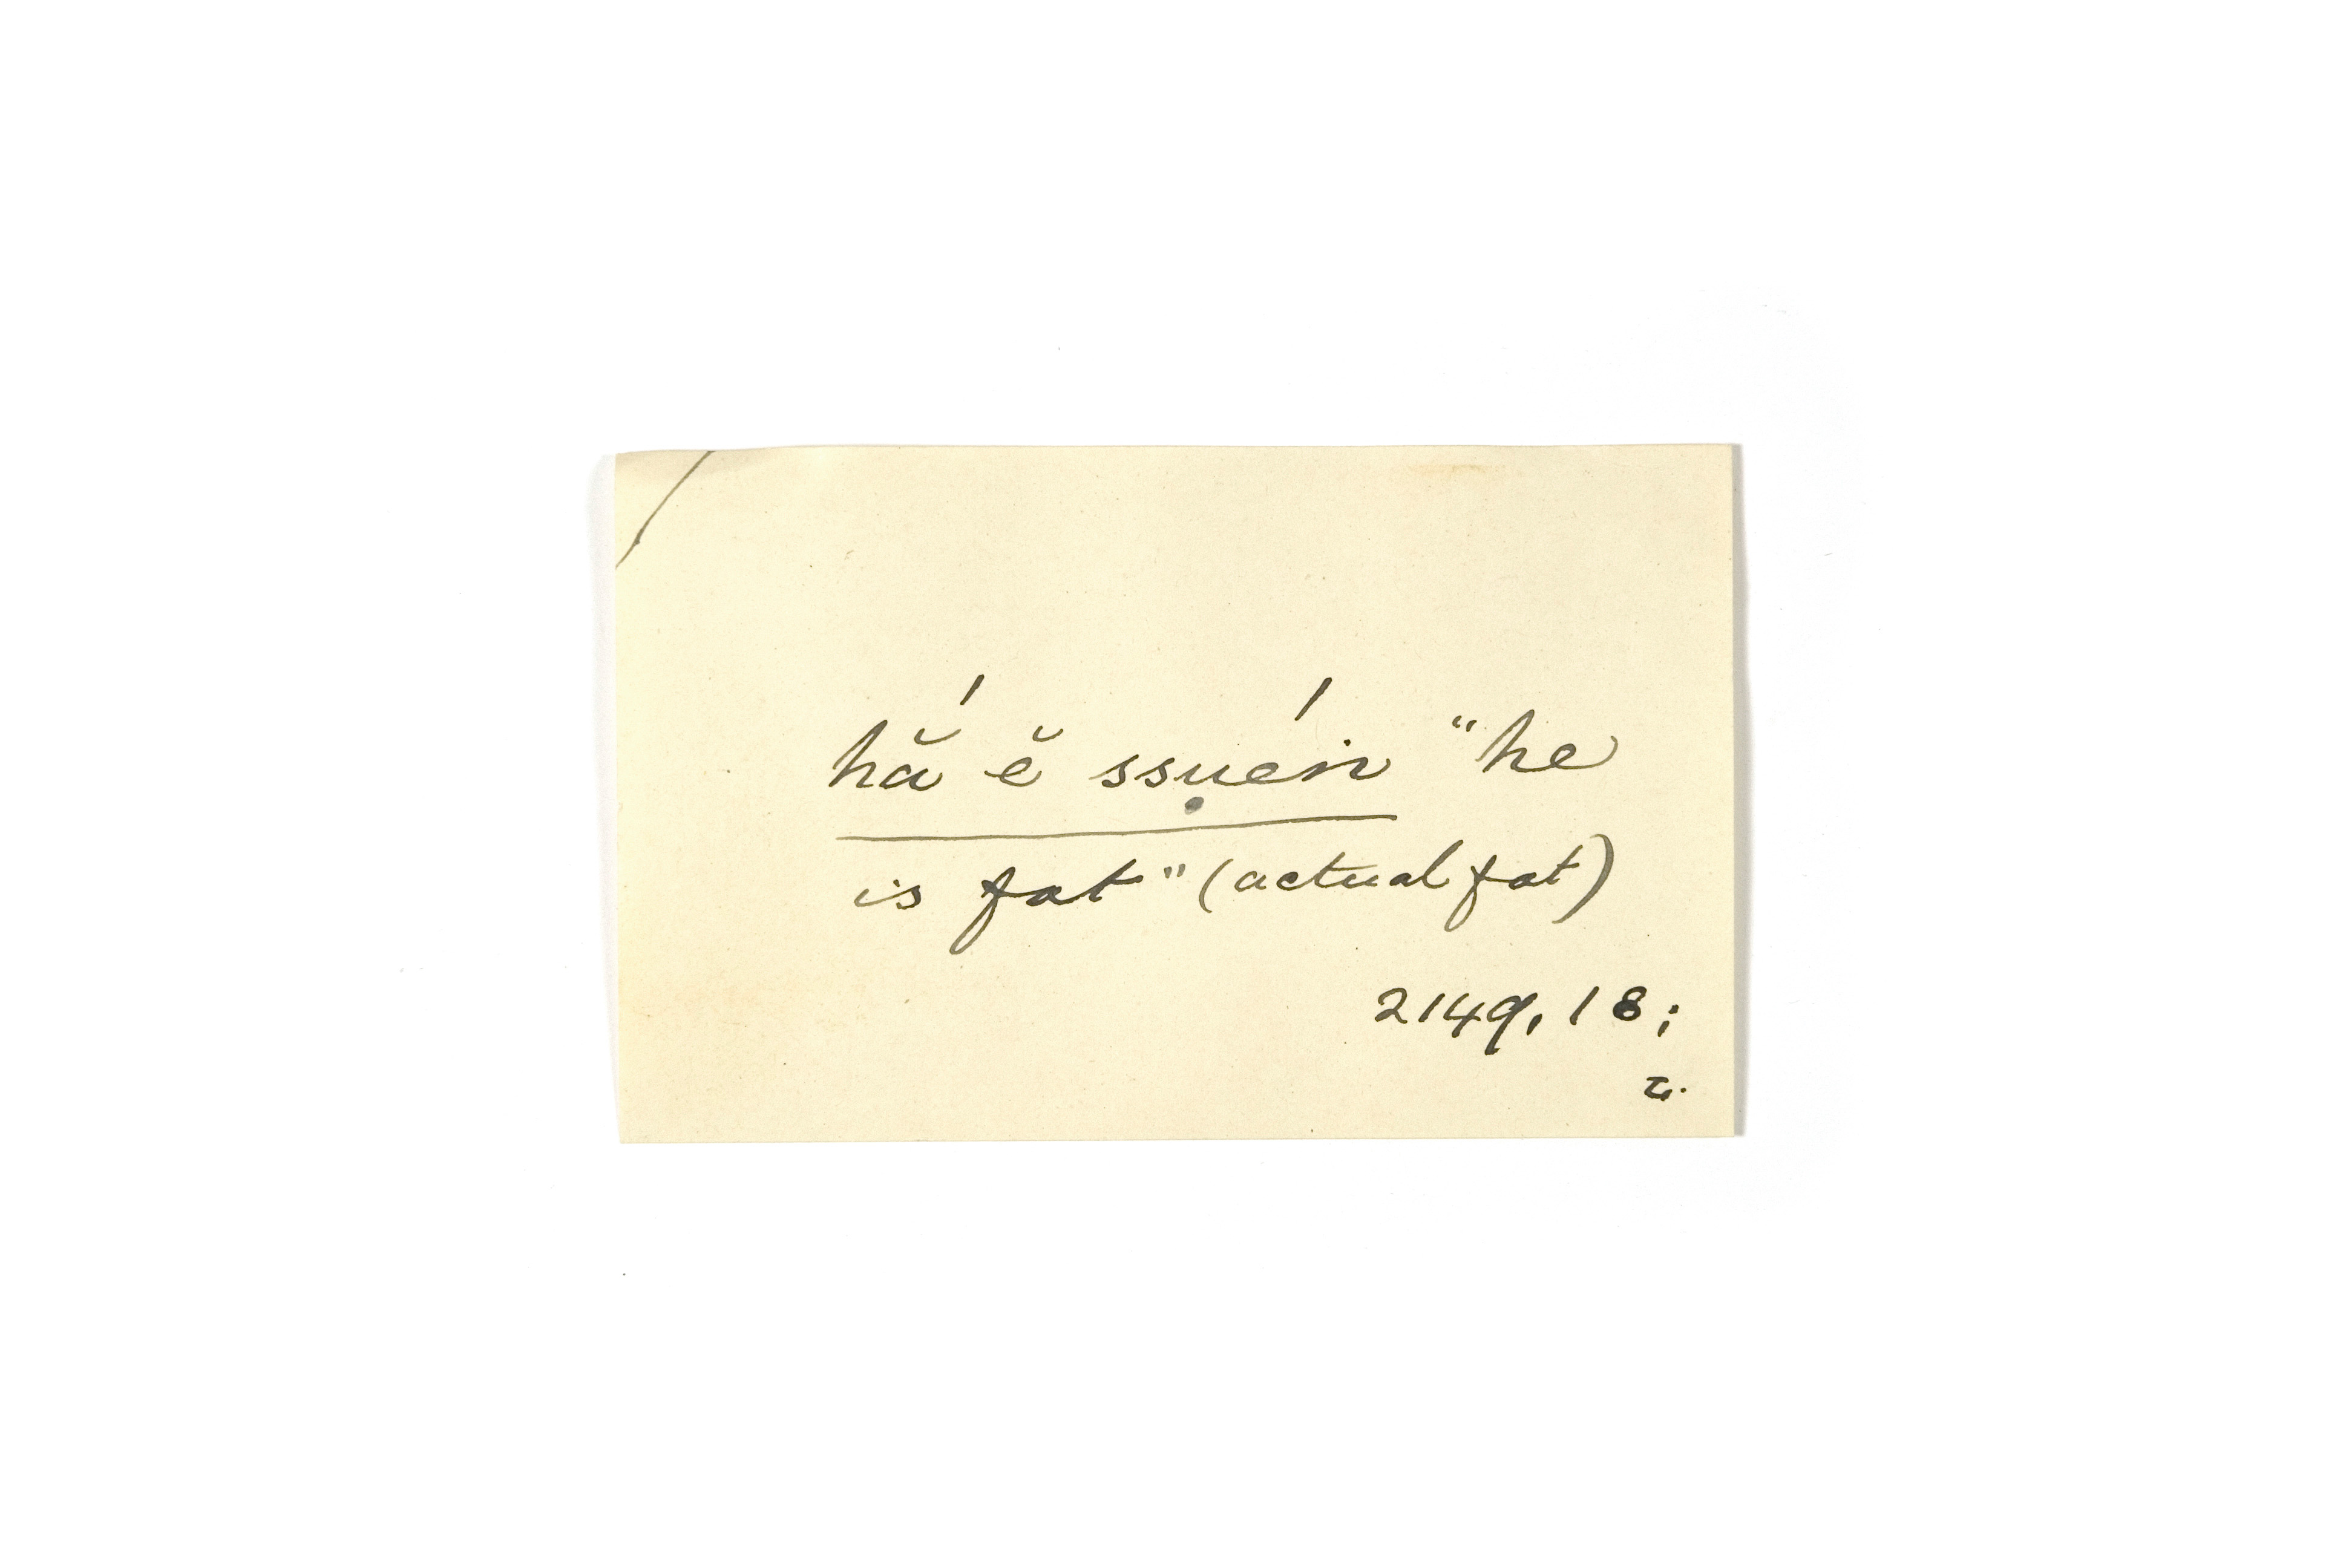 hắ ĕ ssụén "he
is fat" (actual fat)
2149, 18;